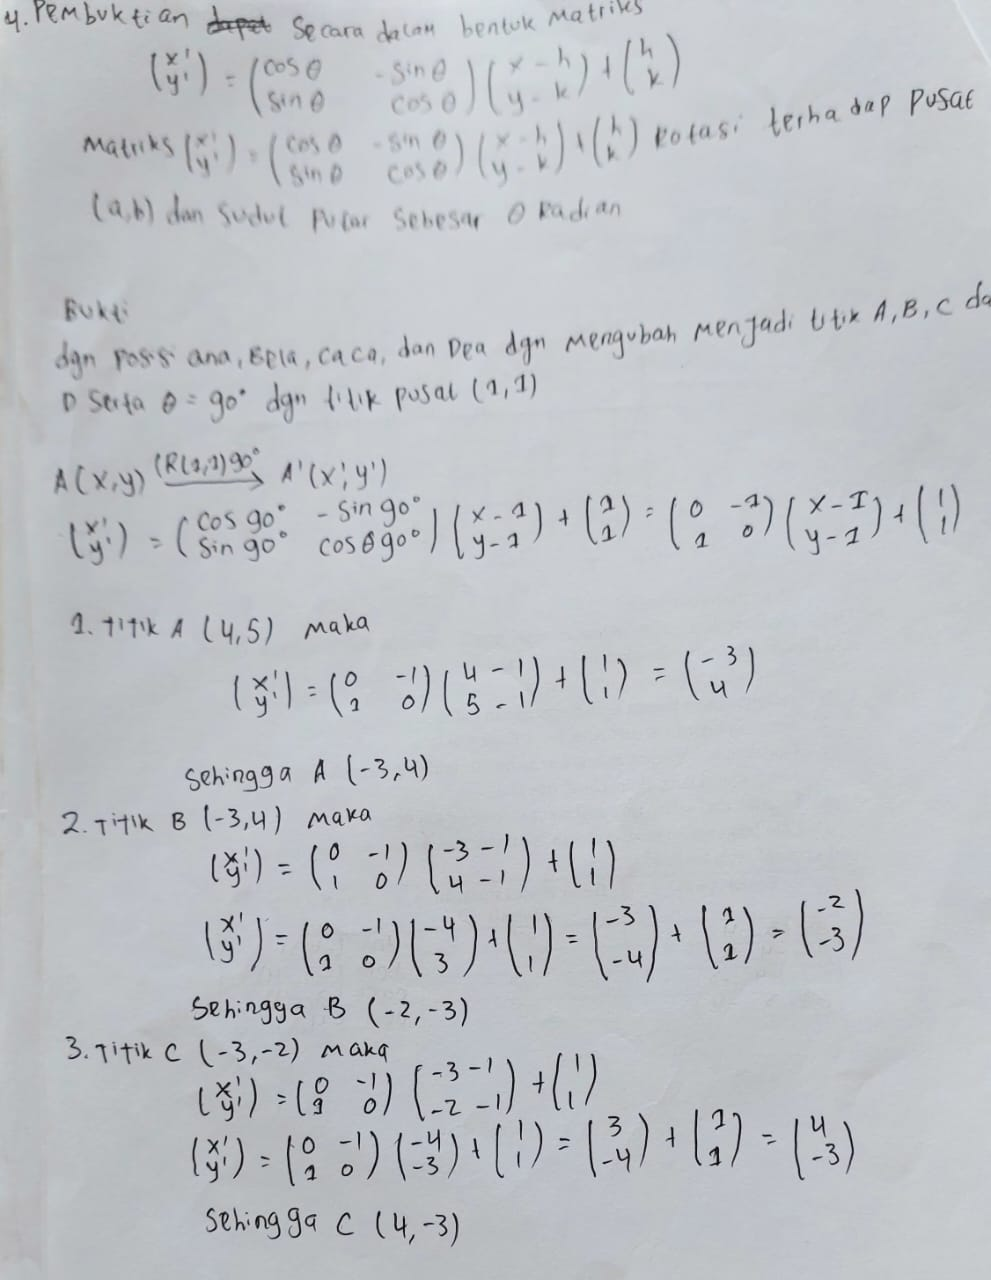 4. Pembuktian dapat Secara dalam bentuk Matriks
(x' y') = (cos θ -sin θ sin θ cos θ) (x - h y - k) + (h k)
Matriks (x' y') = (cos θ -sin θ sin θ cos θ) (x - h y - k) + (h k) Rotasi terhadap Pusat
(a,b) dan Sudut Putar Sebesar θ Radian
Bukti
dgn Posisi ana, Bela, caca, dan Dea dgn Mengubah Menjadi titik A, B, C da
D Serta θ = 90° dgn titik pusat (1,1)
A(x,y) (R(1,1)90° → A'(x',y')
(x' y') = (cos 90° - sin 90° sin 90° cos θ 90°) (x - 1 y - 1) + (1 1) = (0 -1 1 0) (x - 1 y - 1) + (1 1)
1. Titik A (4,5) Maka
(x' y') = (0 -1 1 0) (4 - 1 5 - 1) + (1 1) = (-3 4)
Sehingga A (-3,4)
2. Titik B (-3,4) Maka
(x' y') = (0 -1 1 0) (-3 - 1 4 - 1) + (1 1)
(x' y') = (0 -1 1 0) (-4 3) + (1 1) = (-3 -4) + (1 1) = (-2 -3)
Sehingga B (-2, -3)
3. Titik C (-3,-2) Maka
(x' y') = (0 -1 1 0) (-3 - 1 -2 - 1) + (1 1)
(x' y') = (0 -1 1 0) (-4 -3) + (1 1) = (3 -4) + (1 1) = (4 -3)
Sehingga C (4,-3)